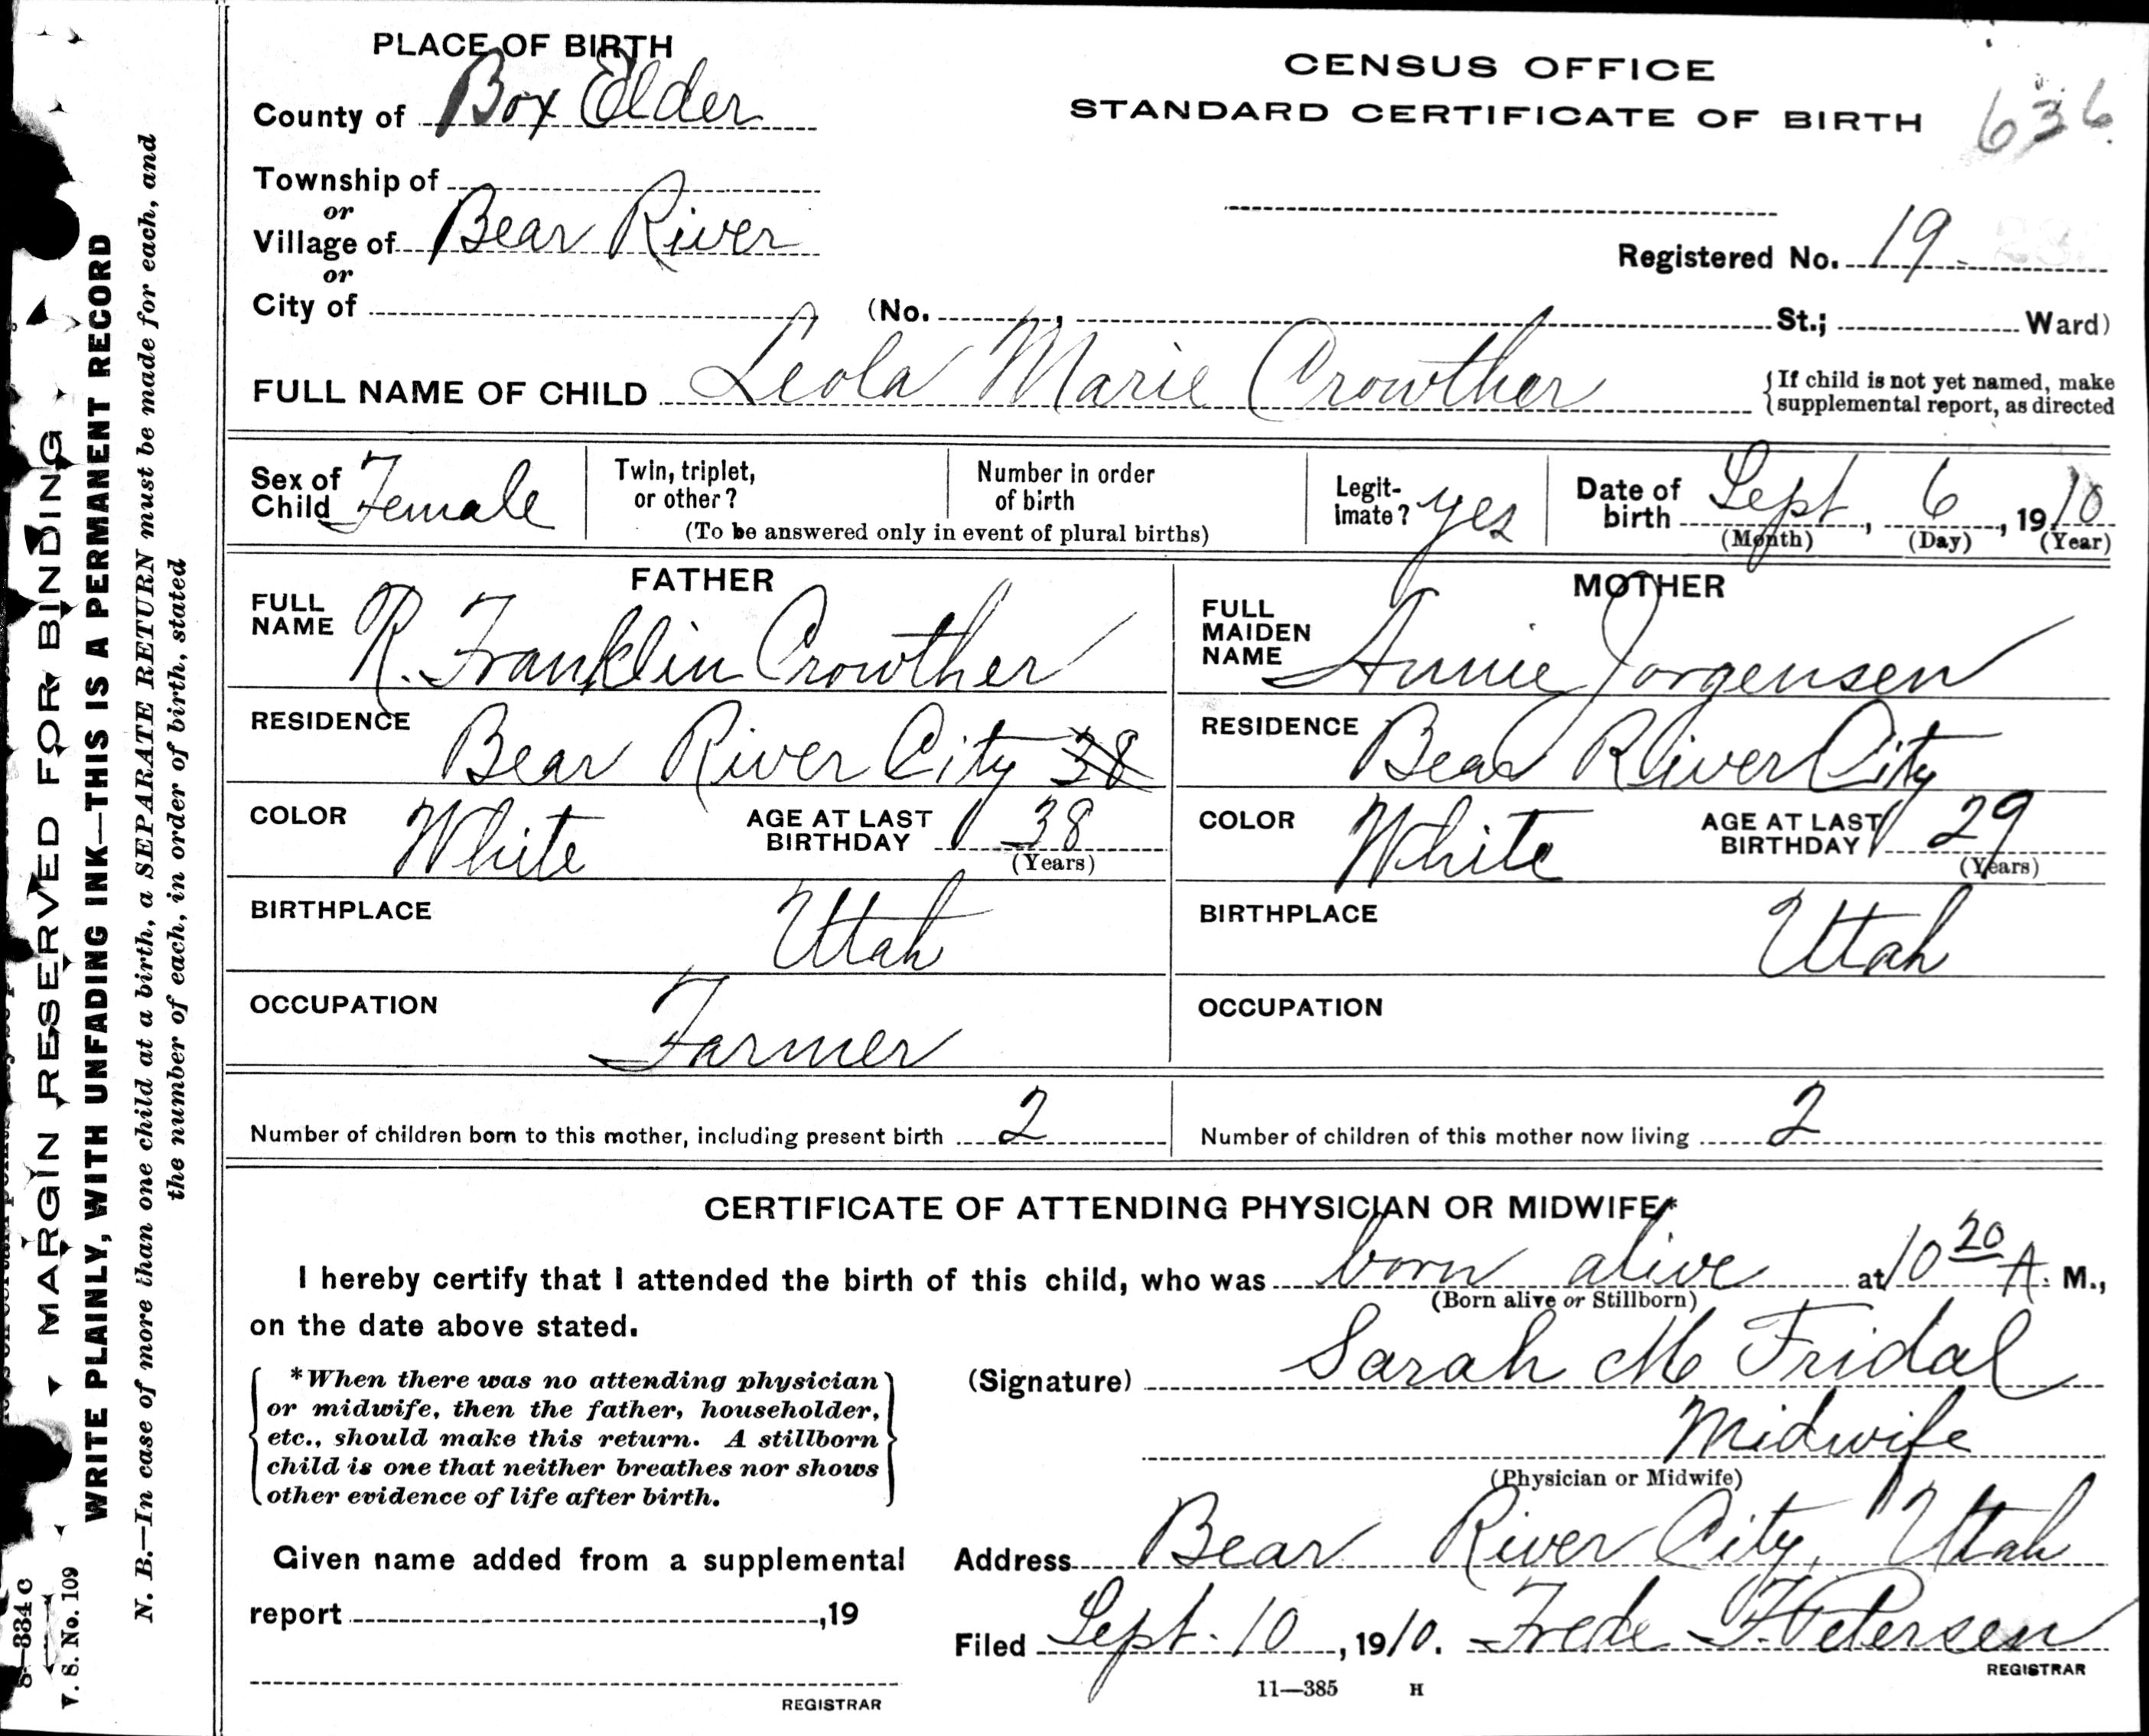 PLACE OF BIRTH
CENSUS OFFICE
STANDARD CERTIFICATE OF BIRTH 636
County of Box Elder
Township of
or
Village of Bear River
or
Registered No. 19
City of (No. , St.; Ward)
FULL NAME OF CHILD Leola Marie Crowther {If child is not yet named, make
supplemental report, as directed
Sex of Child Female
Twin, triplet, or other?
Number in order of birth
(To be answered only in event of plural births)
Legit-imate? yes
Date of birth Sept, 6, 1910
(Month) (Day) (Year)
FATHER
FULL NAME R. Franklin Crowther
RESIDENCE Bear River City 38
COLOR White AGE AT LAST BIRTHDAY 38
(Years)
BIRTHPLACE Utah
OCCUPATION Farmer
MOTHER
FULL MAIDEN NAME Annie Jorgensen
RESIDENCE Bear River City
COLOR White AGE AT LAST BIRTHDAY 29
(Years)
BIRTHPLACE Utah
OCCUPATION
Number of children born to this mother, including present birth 2
Number of children of this mother now living 2
CERTIFICATE OF ATTENDING PHYSICIAN OR MIDWIFE*
I hereby certify that I attended the birth of this child, who was born alive at 10 20 A. M.,
(Born alive or Stillborn)
on the date above stated.
*When there was no attending physician
or midwife, then the father, householder,
etc., should make this return. A stillborn
child is one that neither breathes nor shows
other evidence of life after birth.
(Signature) Sarah M Fridal
Midwife
(Physician or Midwife)
Given name added from a supplemental
report ,19
REGISTRAR
Address Bear River City, Utah
Filed Sept. 10, 1910. Frede F. Petersen
REGISTRAR
11—385 H
MARGIN RESERVED FOR BINDING
WRITE PLAINLY, WITH UNFADING INK—THIS IS A PERMANENT RECORD
N. B.—In case of more than one child at a birth, a SEPARATE RETURN must be made for each, and
the number of each, in order of birth, stated
V. S. No. 109
8—334 c